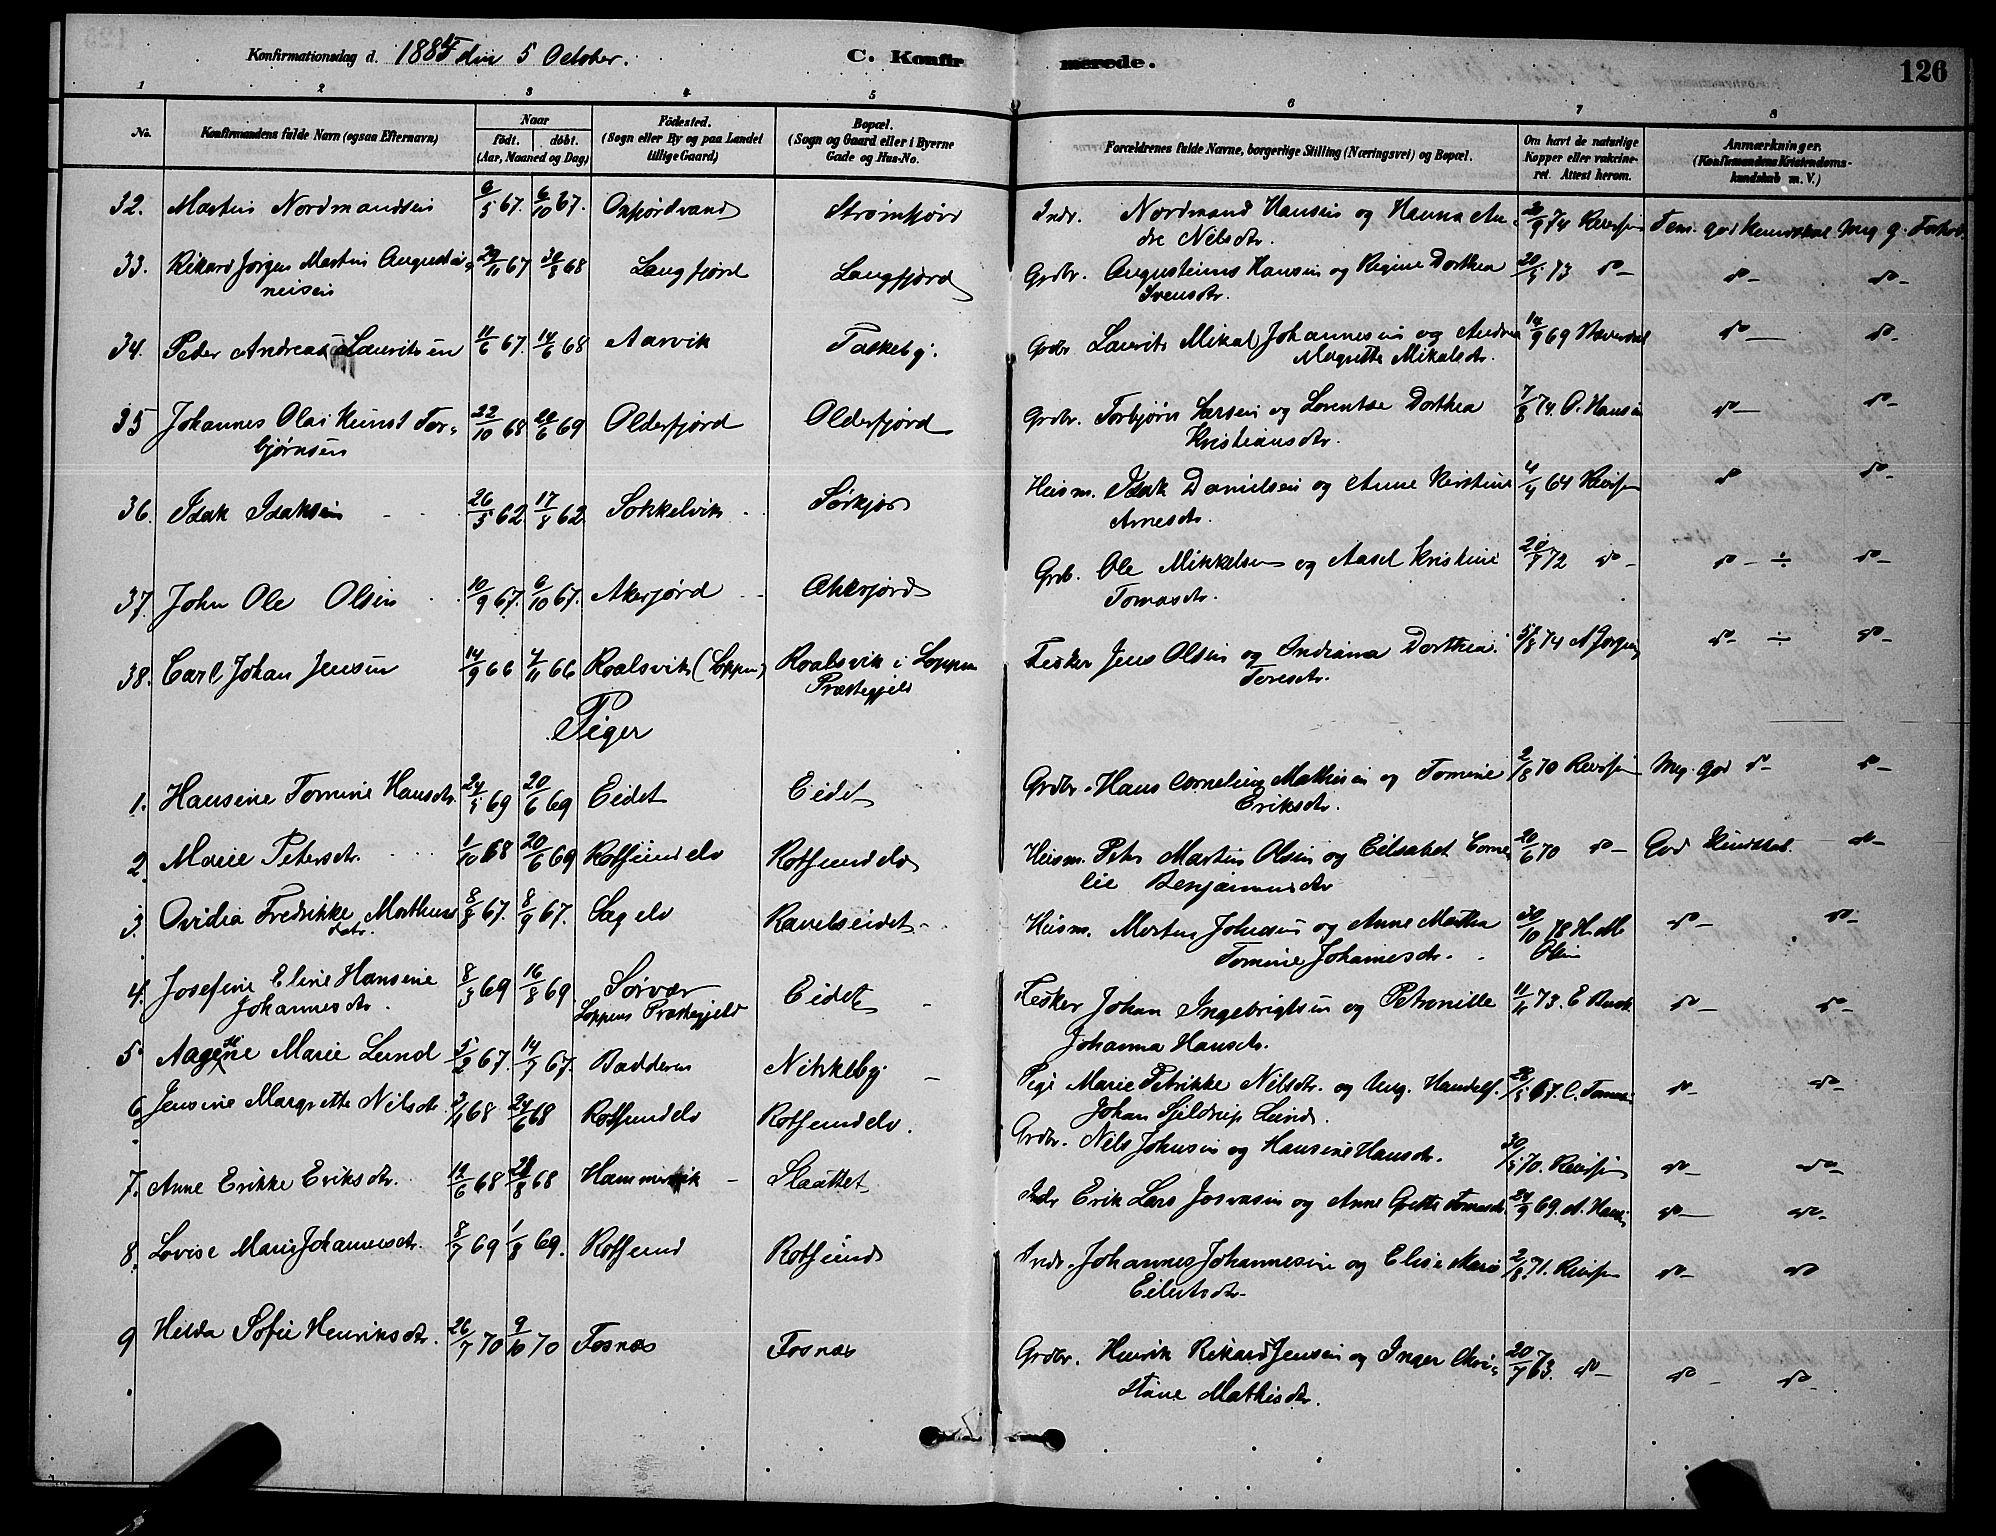 Konfirmationsdag d. 1884 den 5 October. C. Konfirmerede. 126
1 2 3 4 5 6 7 8
No. Konfirmandens fulde Navn (ogsaa Efternavn) Naar født. døbt. (Aar, Maaned og Dag) Fødested. (Sogn eller By og paa Landet tillige Gaard) Bopæl. (Sogn og Gaard eller i Byerne Gade og Hus-No. Forældrenes fulde Navne, borgerlige Stilling (Næringsvei) og Bopæl. Om havt de naturlige Kopper eller vakcineret. Attest herom. Anmærkninger. (Konfirmandens Kristendomskundskab m. V.)
32. Martin Nordmandsen 6/5 67. 6/10 67. Oxfjordvand Strømfjord Indr. Nordmand Hansen og Hanna Andre Nilsdtr. 9 74 Meg g. Forh.
33. Rikard Jørgen Martin Augustinussen 29/11 67 30/8 68 Langfjord Langfjord Grdbr. Augustinus Hansen og Regine Dorthea Svensdtr. 20/5 73 do- do- do-
34. Peder Andreas Lauritsen 11/6 67. 14/6 68 Aarvik Taskeby. Grdbr Laurits Mikal Johannesen og Andrea Magrette Mikalsdtr. 14/9 69 do- do-
35 Johannes Olai Kunst Torbjørnsen 22/10 68 20/6 69 Olderfjord Olderfjord Grdbr. Torbjørn Larsen og Lorentse Dorthea Kristiansdtr. 7/8 74. O. Hansen do- do-
36. Isak Isaksen 26/5 62 17/8 62 Sokkelvik Sørkjos Husm. Isak Danielsen og Anne Kirstine Arnesdtr. 4/4 64 do do-
37. John Ole Olsen 10/9 67. 6/10 67. Akerfjord Akkerfjord Grdb. Ole Mikkelsen og Aasel Kristine Tomasdtr. 20/7 72 do- do- ÷ do-
38. Carl Johan Jensen 14/9 66 4/11 66 Roalsvik (Loppen) Roalsvik i Loppen Præstegjeld Fisker Jens Olsen og Indiana Dorthea Toresdtr. 5/8 74 do- ÷ do-
Piger
1. Hansine Tomine Hansdtr. 24/5 69 20/6 69 Eidet Eidet Grdbr. Hans Cornelius Mathisen og Tomine Eriksdtr. 2/8 70 Meg. god do- do-
2. Marie Petersdtr. 1/10 68 20/6 69 Rotsundelv Rotsundelv Husm. Peter Martin Olsen og Elisabet Cornelie Benjaminsdtr 20/6 70 do- God Kundskab. do-
3. Ovidia Fredrikke Mortensdatr. 8/8 67. 8/9 67. Sagelv Ravelseidet Husm. Morten Johnsen og Anne Martha Tomine Johannesdtr. 30/10 78 H. M. Olsen do- do-
4. Josefine Eline Hansine Johannesdtr. 8/3 69 16/8 69 Sørvær Loppens Præstegjeld Eidet Fisker Johan Ingebrigtsen og Petronille Johanna Hansdtr. 11/11 73. do- do-
5. Aagene Marie Lund 5/2 67. 14/7 67. Badderen Nikkeby Pige Marie Petrikke Nilsdtr. og Ung. Handelsf. Johan Sjeldrup Lund. 28/5 67. do- do-
6. Jensine Margrette Nilsdtr. 24/6 68 Rotsundelv Rotsundelv. Grdbr. Nils Johnsen og Hansine Hansdtr. 30/5 70. do- do-
7. Anne Erikke Eriksdtr. 14/6 68 Hammervik Slaattet Indr Erik Lars Josvasen og Anne Grette Tomasdtr. 24/9 69. A. do- do-
8. Lovise Marie Johannesdtr. 8/7 69 1/8 69. Rotsund Rotsund Indr. Johannes Johannesen og Elise Marie Eilertsdtr. 2/8 71. do- do
9 Hilda Sofie Henriksdtr. 26/7 70 9/10 70 Fosnæs Fosnæs Grdbr. Henrik Rikard Jensen og Inger Kristine Mathisdtr. 20/7 63. do- do- do-